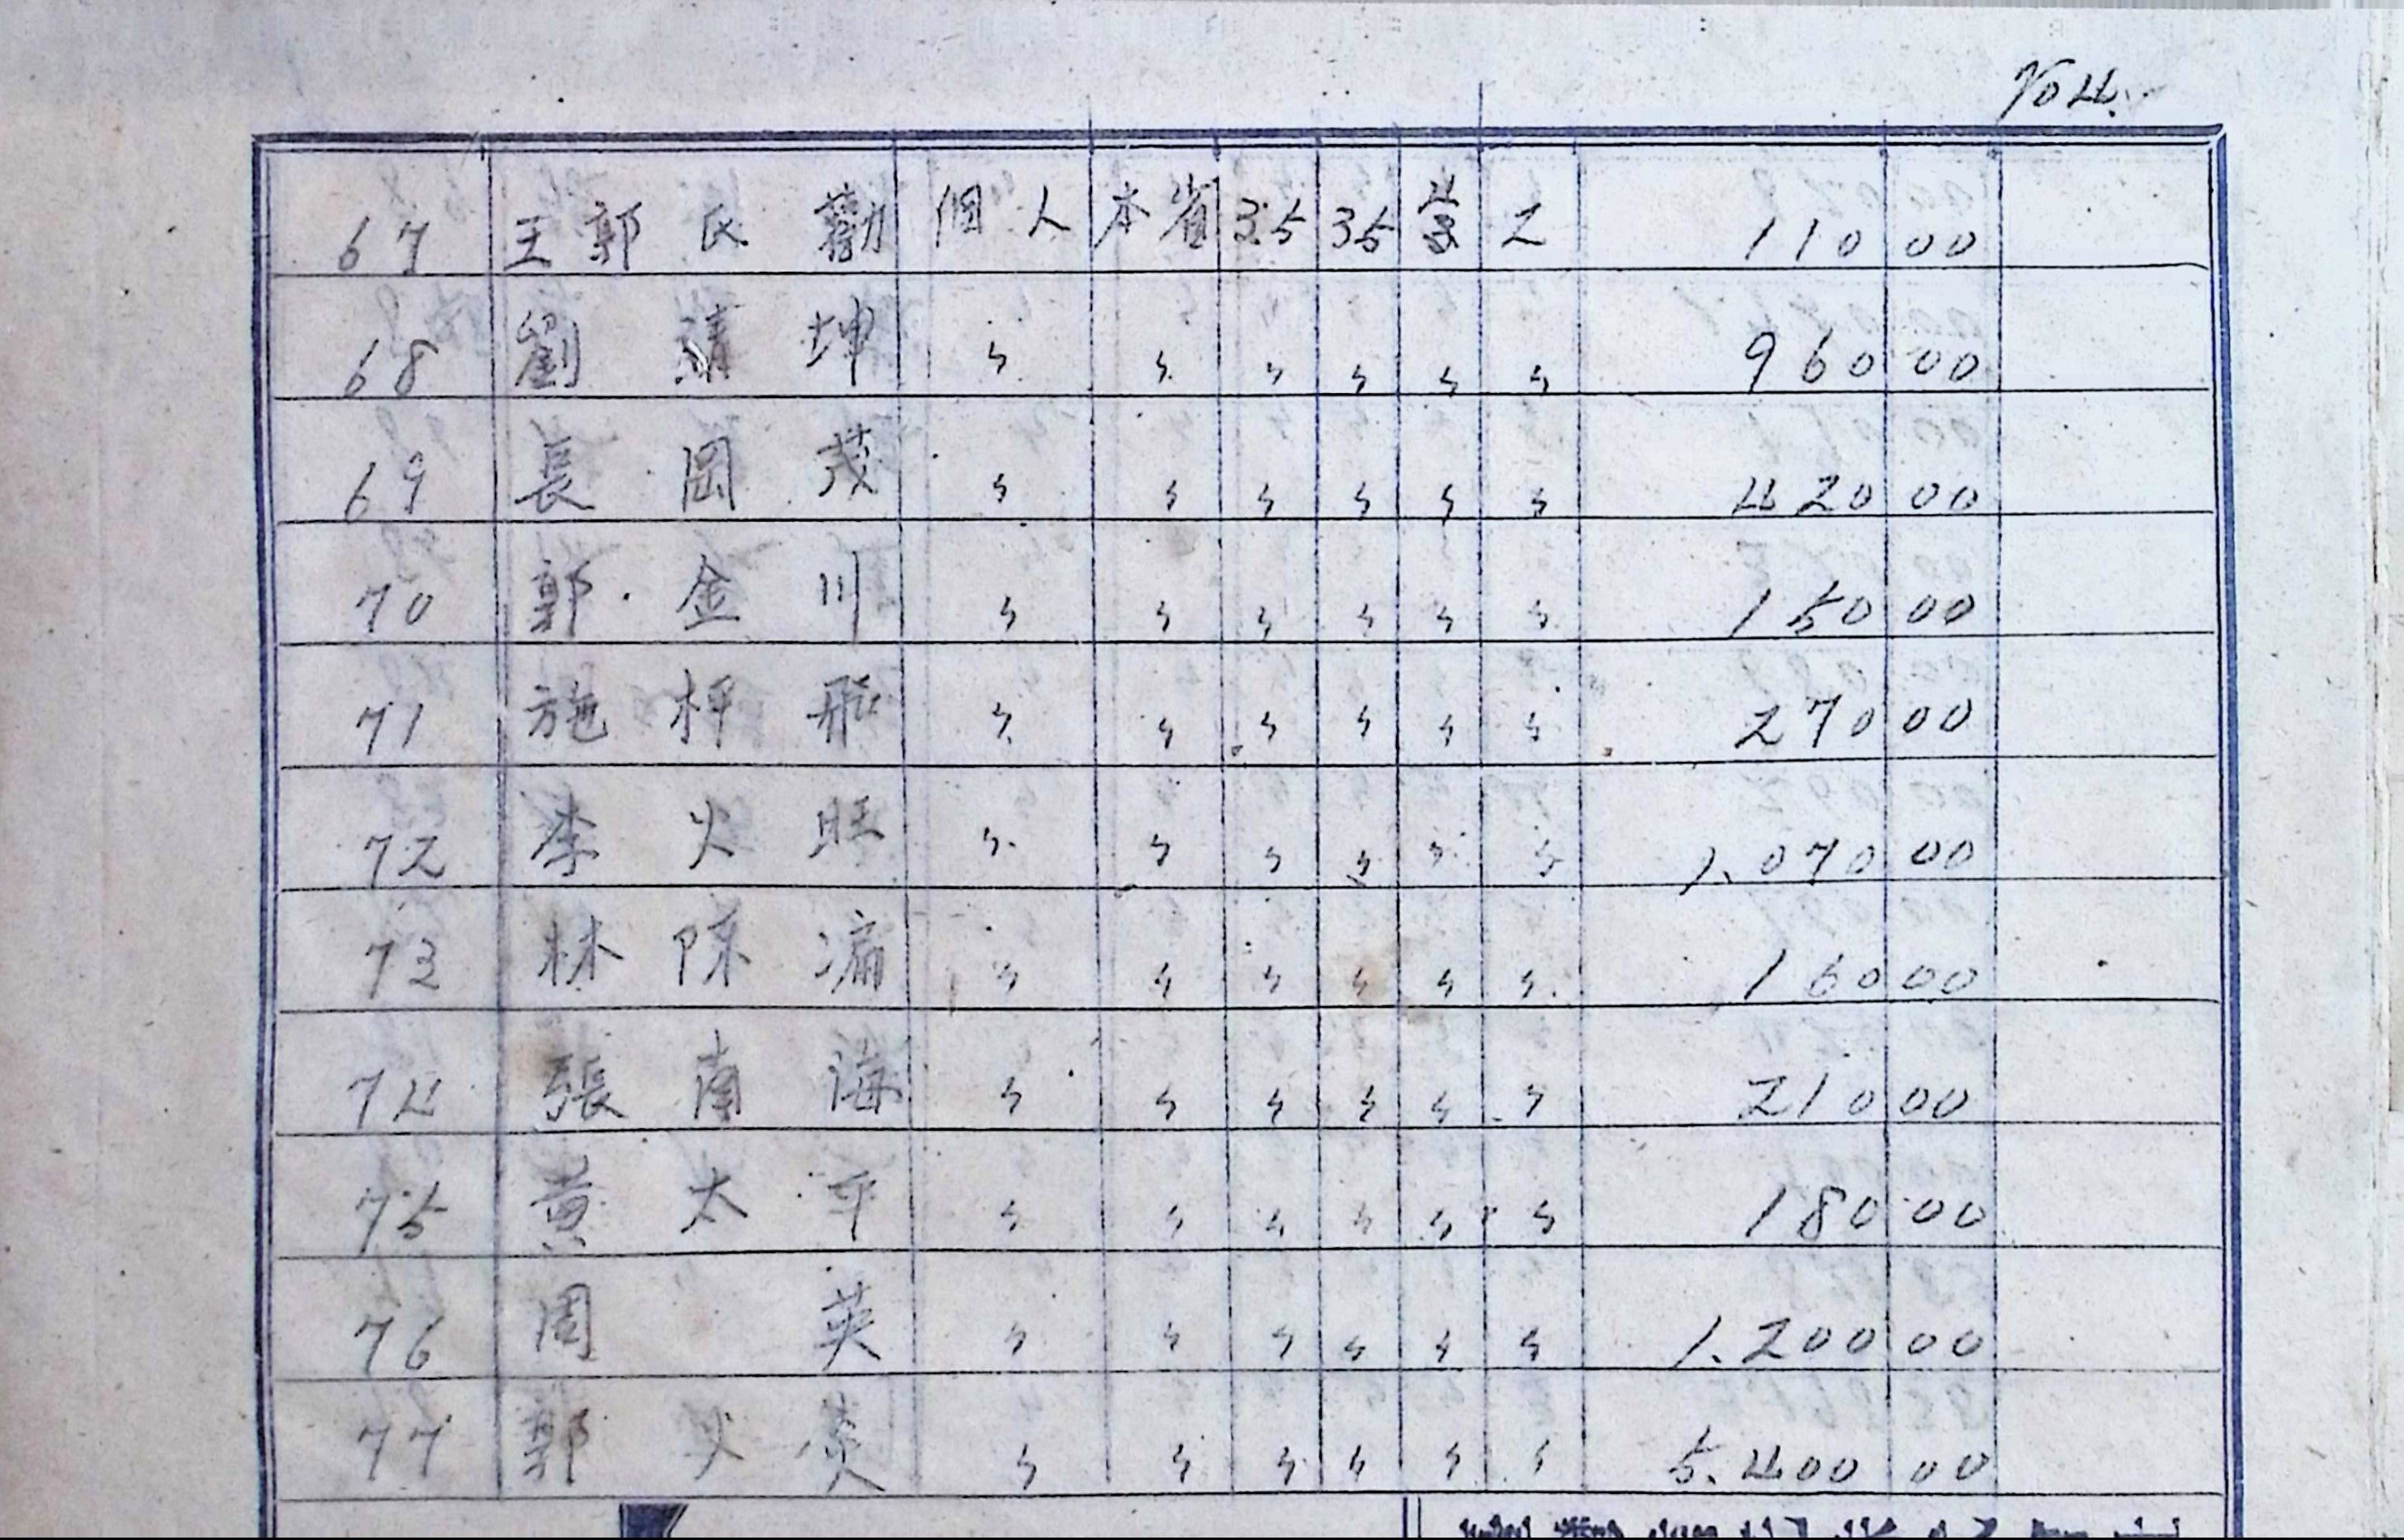 No 4.
67 王郭氏勸 個人 本省 35 35 4 2 110 00
68 劉清坤 〃 〃 〃 〃 〃 〃 960 00
69 長岡茂 〃 〃 〃 〃 〃 〃 420 00
70 郭金川 〃 〃 〃 〃 〃 〃 150 00
71 施枰飛 〃 〃 〃 〃 〃 〃 270 00
72 李火旺 〃 〃 〃 〃 〃 〃 1.070 00
73 林陳滿 〃 〃 〃 〃 〃 〃 160 00
74 張南海 〃 〃 〃 〃 〃 〃 210 00
75 黃太平 〃 〃 〃 〃 〃 〃 180 00
76 周英 〃 〃 〃 〃 〃 〃 1.200 00
77 郭火英 〃 〃 〃 〃 〃 〃 5.400 00